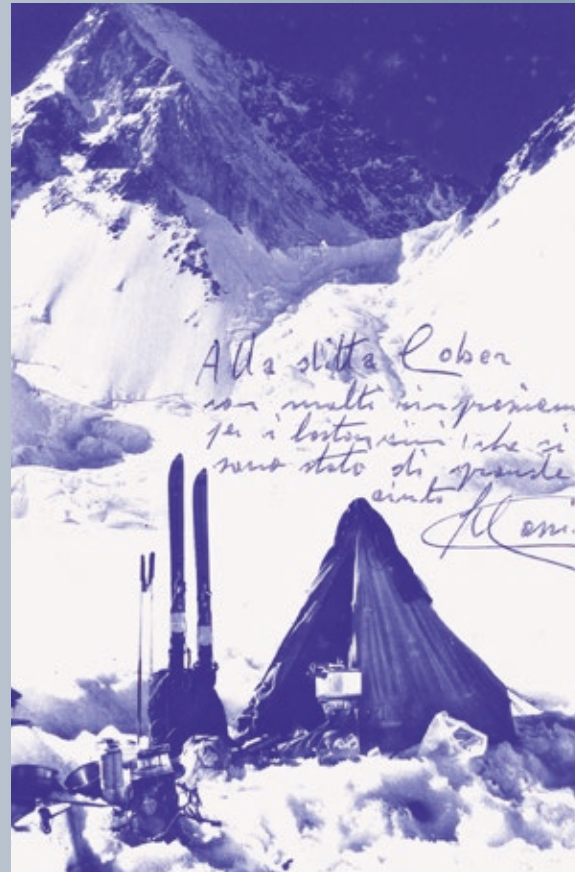 Alla ditta Cober
con molti ringraziam
per i bastoncini, che ci
sono stati di grande
aiuto